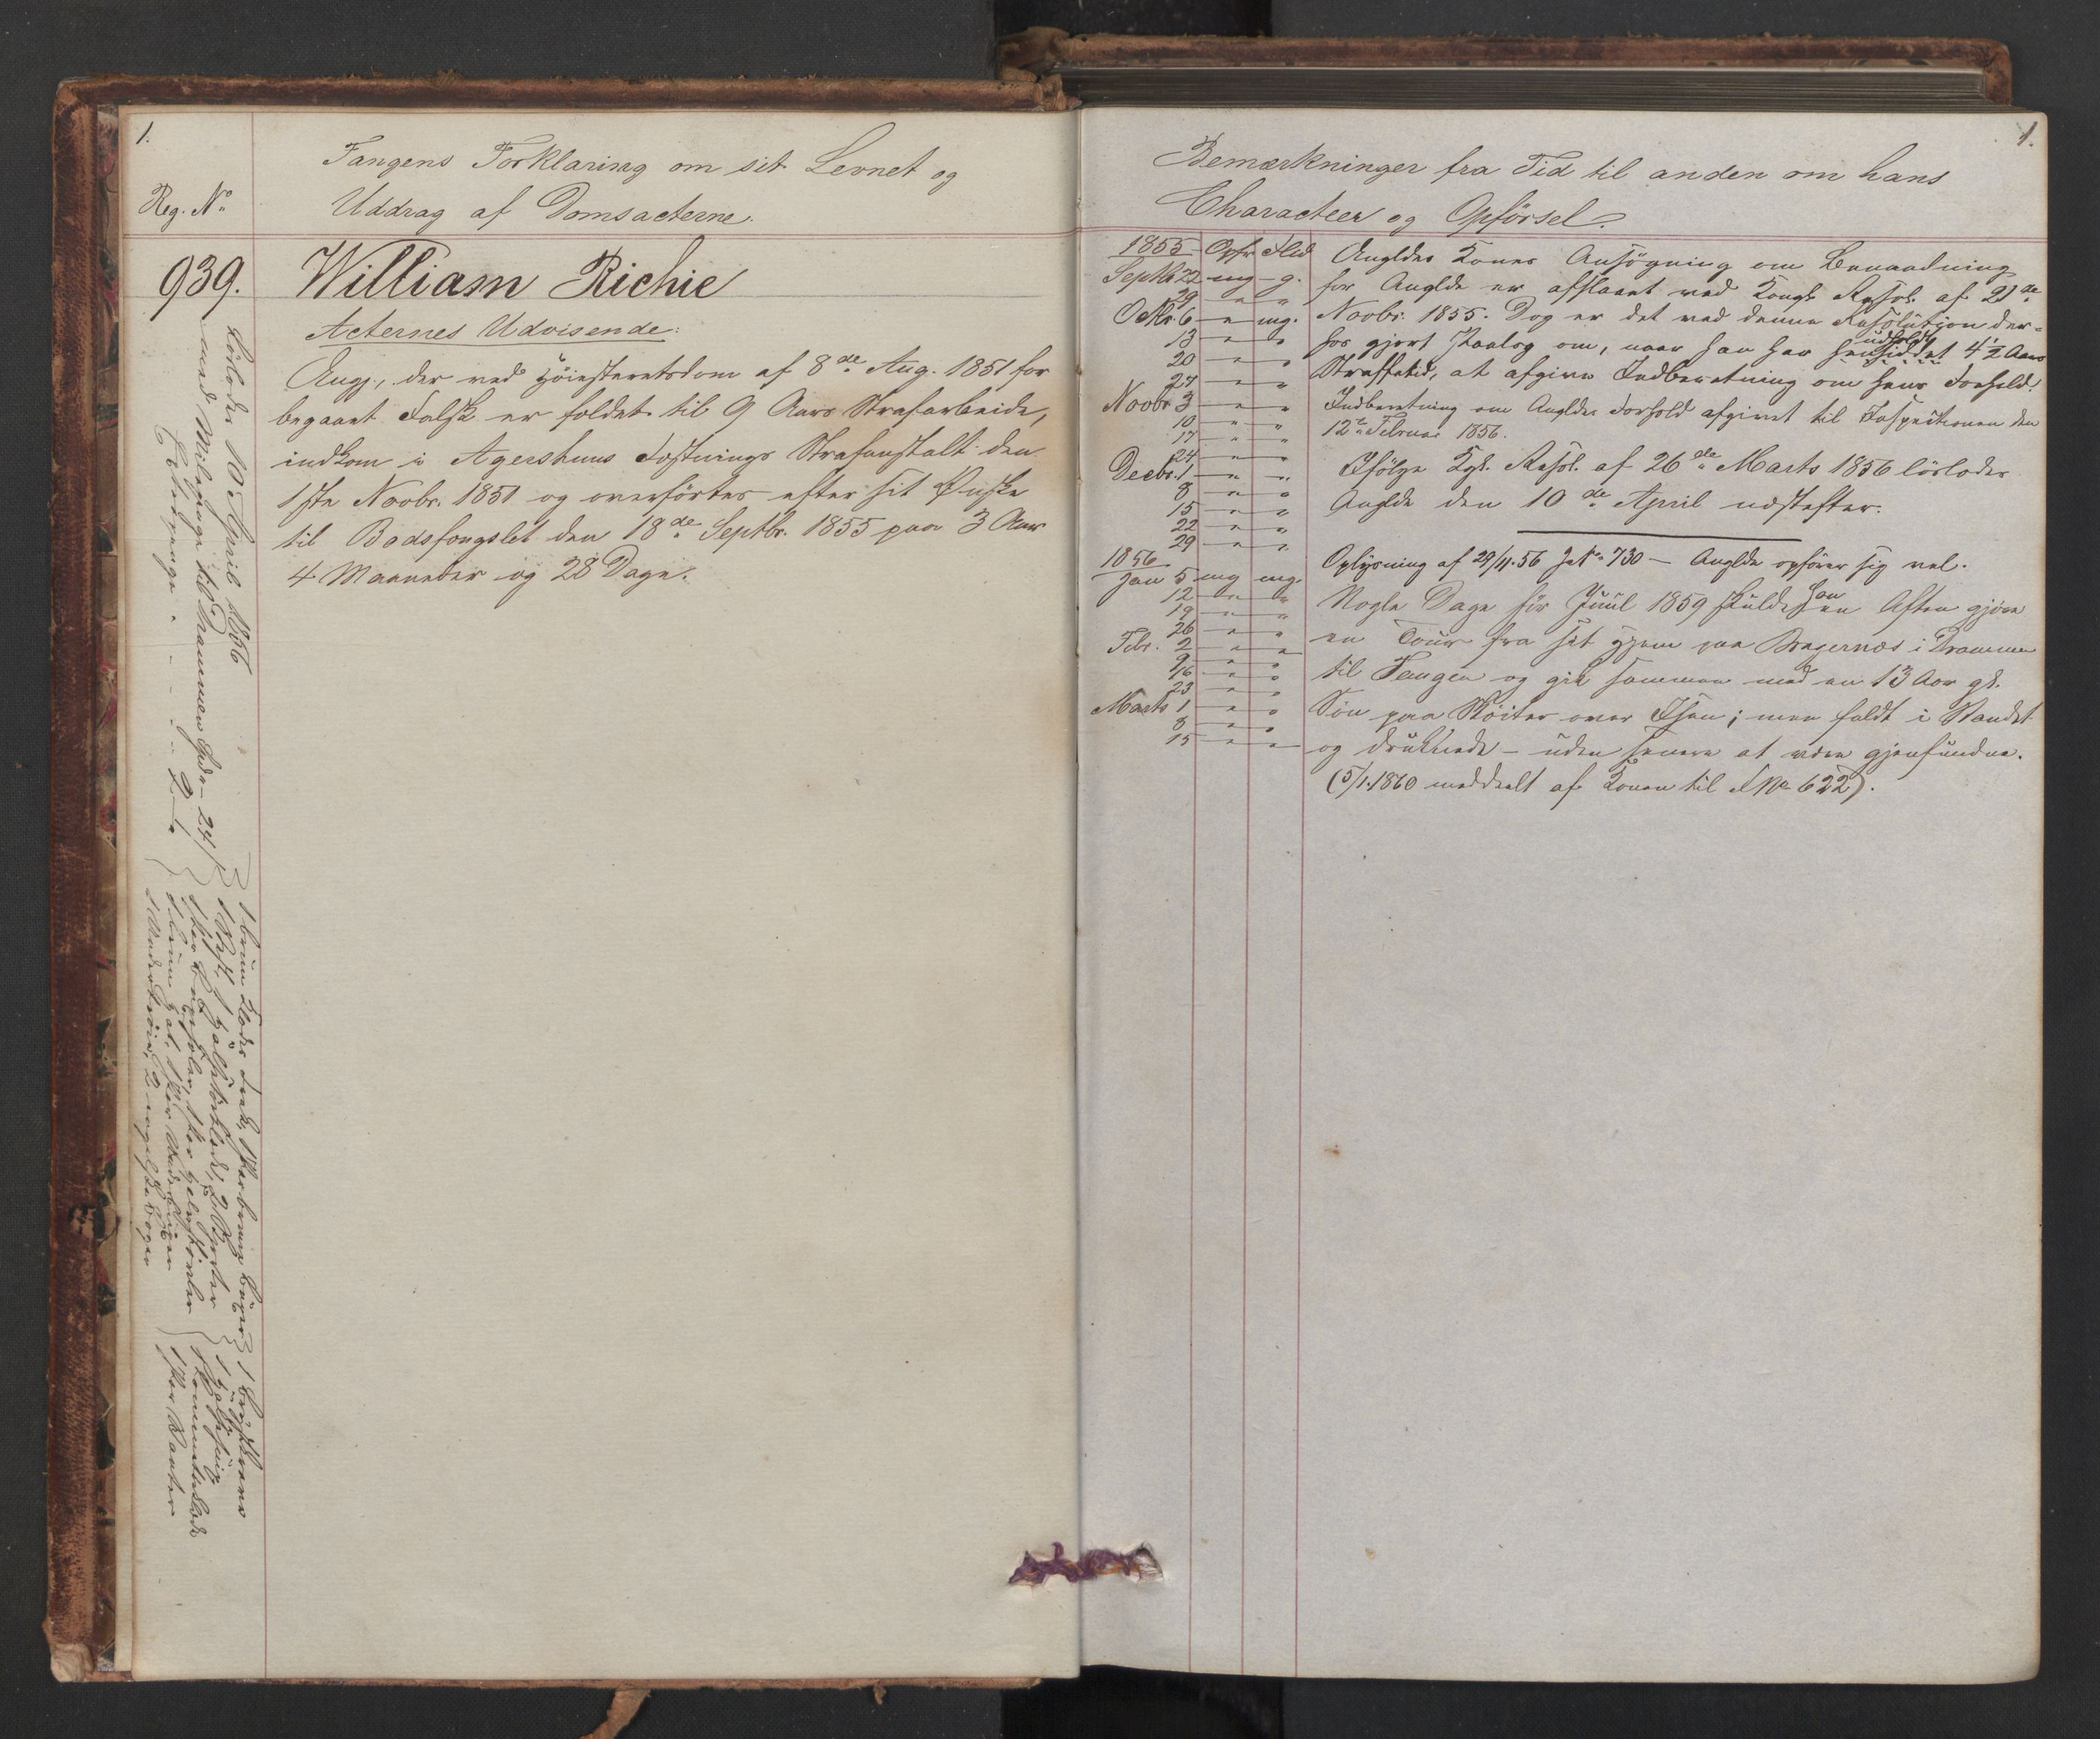 1.
Reg. No
Fangens Forklaring om sit Levnet og
Uddrag af Domsacterne.
939.
William Richie
Acternes Udvisende:
Angj., der ved Höiesteretsdom af 8de Aug. 1851 for
begaaet Falsk er fældet til 9 Aars Strafarbeide,
indkom i Agershuus Fæstnings Strafanstalt den
1ste Novbr. 1851 og overførtes efter sit Ønske
til Bodsfængslet den 18de Septbr. 1855 paa 3 Aar
4 Maaneder og 28 Dage.
Løslodes 10 April 1856
med Melepenge til Drammen
Extrapenge
1 brun Klædes Frak, 1 Par brune Buxer
1 Vest, 1 Halstørklæde, 2 Skjorter
1 Par
1 Hat, 1 Par Underbuxer
1 Undertrøie, 2 engelske Bøger
1.
Bemærkninger fra Tid til anden om hans
Characteer og Opförsel.
1855 Opfr Flid
Septbr 22 mg g.
29 " "
Octbr. 6 " mg.
13 " "
20 " "
27 " "
Novbr 3 " "
10 " "
17 " "
24 " "
Decbr. 1 " "
8 " "
15 " "
22 " "
29 " "
1856
Jan 5 mg mg.
12 " "
19 " "
26 " "
Febr. 2 " "
9 " "
16 " "
23 " "
Marts 1 " "
8 " "
15 " "
Angldes Kones Ansögning om Benaadning
for Anglde er afslaaet ved Kongl. Resol. af 21de
Novbr. 1855. Dog er det ved denne Resolution der-
hos gjort Paalæg om, naar han har udholdt 4 1/2 Aars
Straffetid, at afgive Indberetning om hans Forhold.
Indberetning om Angldes Forhold afgivet til Inspectionen den
12te Februar 1856.
Ifölge Kgl. Resol. af 26de Marts 1856 löslodes
Anglde den 10de April næstefter.
Oplysning af 29/11.56 J No 730 — Anglde opförer sig vel.
Nogle Dage för Juul 1859 skulde han en Aften gjöre
en Tour fra sit Hjem paa Bragernæs i Drammen
til Tangen og gik sammen med en 13 Aar gl.
Sön paa Skøiter over Isen; men faldt i Vandet
og druknede – uden senere at være gjenfundne.
(5/1.1860 meddeelt af Konen til No 622).